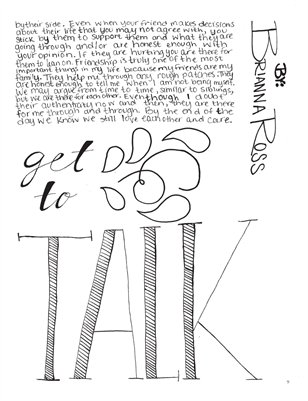 by their side. Even when your friend makes decisions
about their life that you may not agree with, you
stick by them to support them and what they are
going through and/or are honest enough with
your opinion. If they are hurting you are there for
them to lean on. Friendship is truly one of the most
important things in my life because my friends are my
family. They help me through any rough patches. They
are honest enough to tell me when I am not being myself.
We may argue from time to time, similar to siblings,
but we are there for each other. Even though I doubt
their authenticity now and then, they are there
for me through and through. By the end of the
day we know we still love each other and care.
BY:
BRIANNA ROSS
get
to
TALK